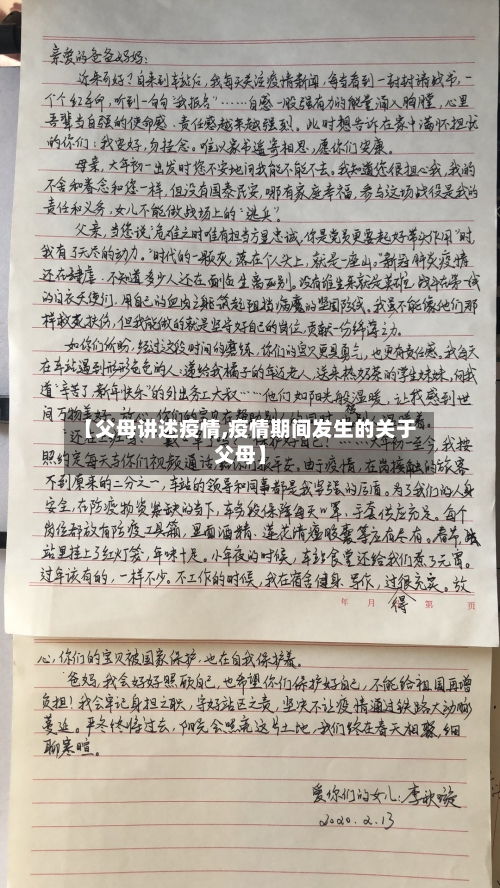 亲爱的爸爸妈妈:
近来可好?自来到车站后,我每天关注疫情新闻,每当看到一封封请战书,一
个个红手印,听到一句句“我报名”……自感一股强有力的能量涌入胸膛,心里
吾辈当自强的使命感、责任感越来越强烈。此时想告诉在家中满怀担忧
的你们:我安好,勿挂念。唯以家书遥寄相思,愿你们安康。
母亲,大年初一出发时您不安地问我能不能不去。我知道您很担心我,我的
不舍和眷恋和您一样,但没有国泰民安,哪有家庭幸福,参与这场战役是我的
责任和义务,女儿不能做战场上的“逃兵”。
父亲,当您说“危难之时唯有担当方显忠诚,你是党员更要起好带头作用”时,
我有了无尽的动力。“时代的一颗灰,落在个人头上,就是一座山。”新冠肺炎疫情
还在肆虐,不知道多少人还在面临生离死别。没有谁生来就是英雄,战斗在第一线
的白衣天使们,用自己的血肉之躯筑起阻挡病魔的坚固防线。我虽不能像他们那
样救死扶伤,但我能做的就是坚守好自己的岗位,贡献一份绵薄之力。
如你们所盼,经过这段时间的磨练,你们的宝贝更具勇气,也更有责任感。我每天
在车站遇到形形色色的人:递给我橘子的车迷老人、送来热奶茶的学生妹妹、向我
道“辛苦了,新年快乐”的外出务工大叔……他们如阳光般温暖,让我感到世
间万物美好。放心,你们的宝贝在帮助别人的同时,
【父母讲述疫情,疫情期间发生的关于
父母】
大年初一至今,我按
照约定每天与你们视频通话
报平安。由于疫情,在岗接触的旅客
不到原来的二分之一,车站的领导和同事都是我坚强的后盾。为了我们的人身
安全,在防疫物资紧缺的当下,车务段保障每天口罩、手套供应充足。每个
岗位都放有防疫工具箱,里面酒精、莲花清瘟胶囊等应有尽有。春节,我
站里挂上了红灯笼,年味十足。小年夜的时候,车站食堂还给我们煮了元宵。
过年该有的,一样不少。不工作的时候,我在宿舍健身、写作,过得很充实。放
年 月 第 页
心,你们的宝贝被国家保护,也在自我保护着。
爸妈,我会好好照顾自己,也希望你们保护好自己,不能给祖国再增
负担!我会牢记身担之职,守好站区之责,坚决不让疫情通过铁路大动脉
蔓延。严冬终将过去,阳光会照亮这片土地,我们终在春天相聚,细
聊寒暄。
爱你们的女儿:李
2020.2.13